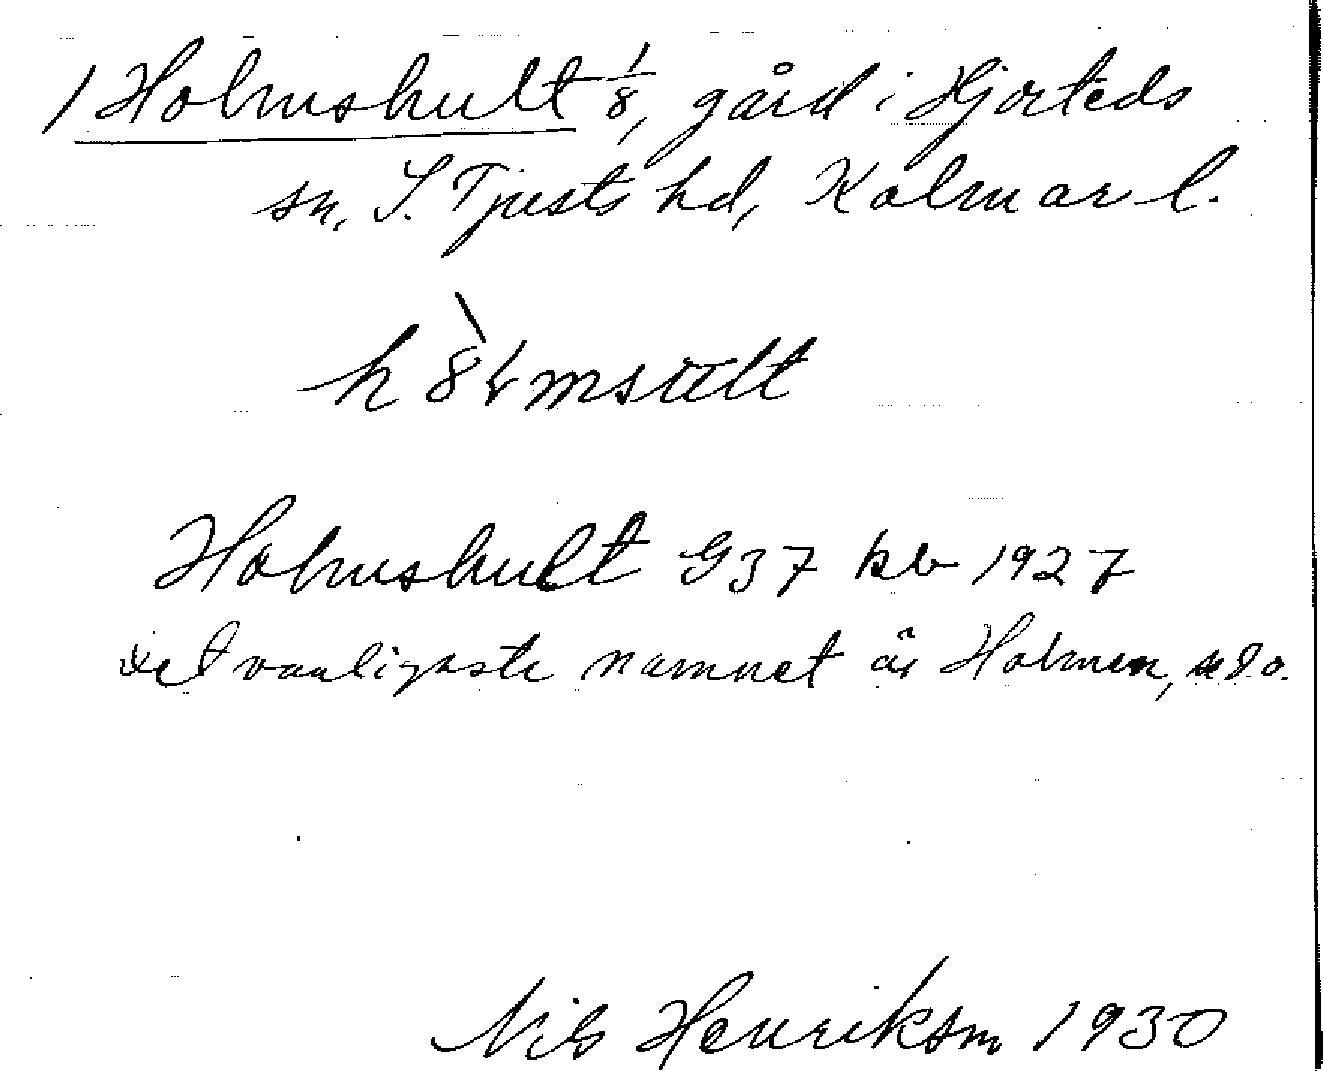 1 Holmshult 1/8, gård i Hjorteds
sn, S. Tjusts hd, Kalmar l.
Holmshult G37 kb 1927
Det vanligaste namnet är Holmen,
Nils Henrikson 1930